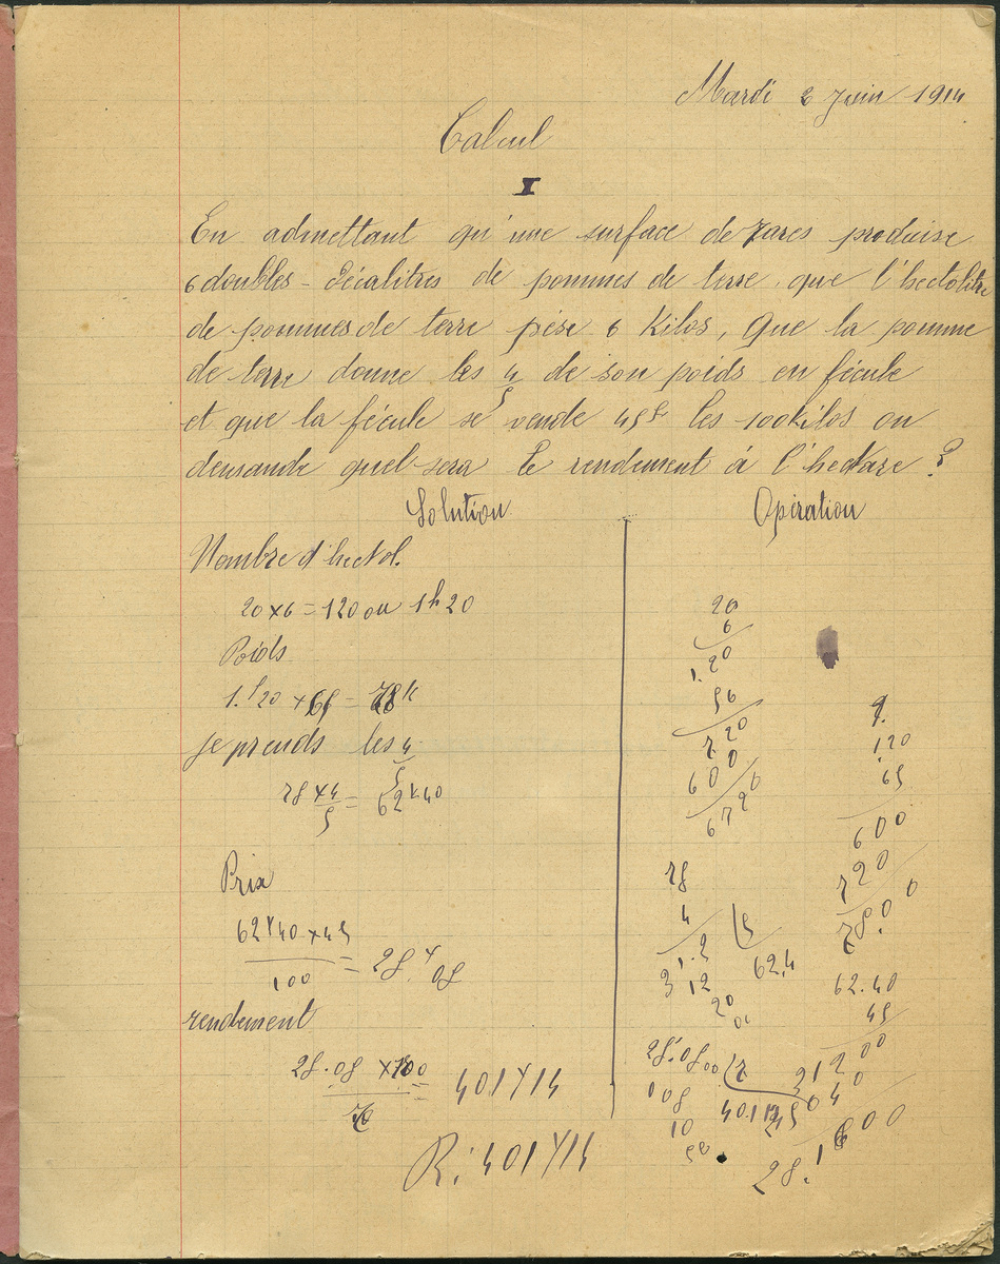 Mardi 2 Juin 1914
Calcul
I
En admettant qu'une surface de 7 ares produise
6 doubles-décalitres de pommes de terre que l'hectolitre
de pommes de terre pèse 6 Kilos, Que la pomme
de terre donne les 4/5 de son poids en fécule
et que la fécule se vende 45f les 100 kilos on
demande quel sera le rendement à l'hectare ?
Solution
Opération
Nombre d'hectol.
20 x 6 = 120 ou 1h20
Poids
1.h20 x 65 = 78k
je prends les 4/5
78 x 4/5 = 62k40
Prix
62k40 x 45
100
= 28f08
rendement
28.08 x 100
7
= 401f14
R: 401f14
20
6
1.20
56
720
600
6720
120
65
600
720
78.00
78
4
312
5
62,4
1.2
20
62.40
45
31200
28.0800
7
008
10